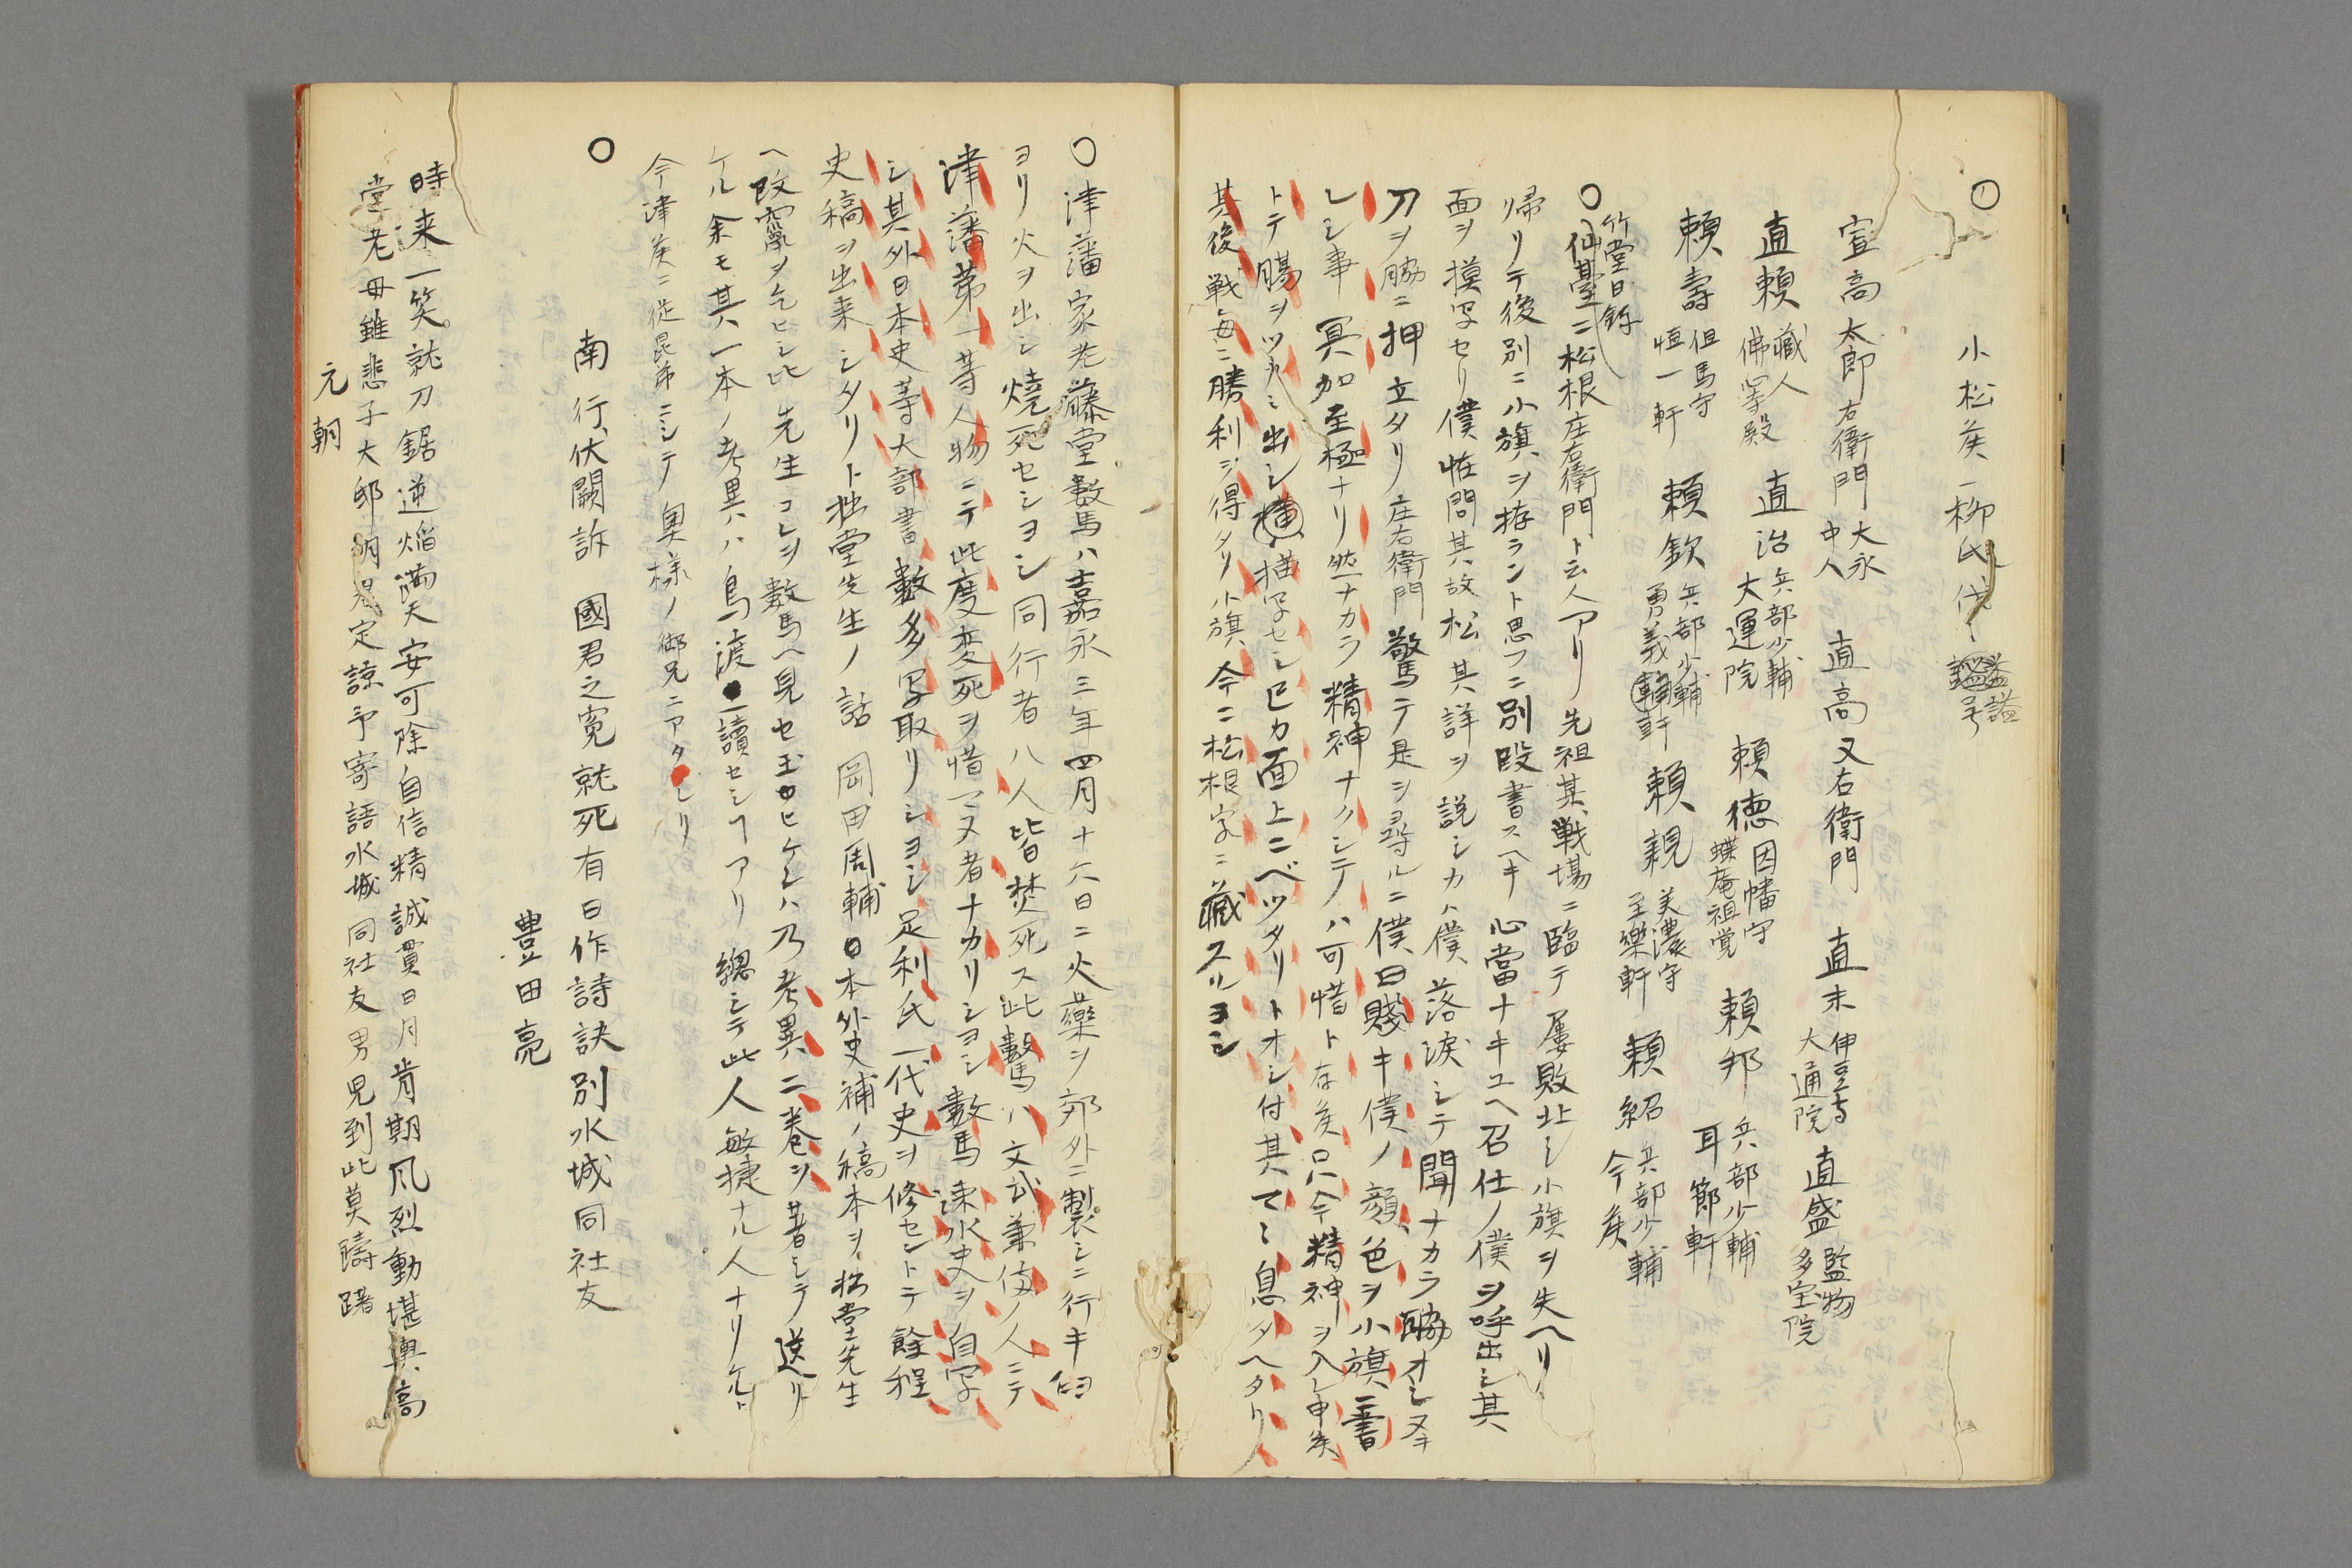 〇
小松矦一柳氏代々諡号
宣高太郎右衛門大永中人 直高又右衛門 直末伊豆守大通院 直盛監物多宝院
直頼蔵人佛家殿 直治兵部少輔大運院 頼徳因幡守蝶庵祖覚 頼邦兵部少輔耳節軒
頼壽但馬守恒一軒 頼欽兵部少輔勇義軒 頼親美濃守至樂軒 頼紹兵部少輔今矦
竹堂日録
〇仙臺ニ松根庄右衛門ト云人アリ先祖某戦場ニ臨テ屡敗北シ小旗ヲ失ヘリ
帰リテ後別ニ小旗ヲ拵ラント思フニ別段書スヘキ心當ナキユヘ召仕ノ僕ヲ呼出シ其
面ヲ摸写セリ僕怪問其故松其詳ヲ説シカハ僕落涙シテ聞ナカラ脇オシヌキ
刀ヲ脇ニ押立タリ庄右衛門驚テ是ヲ尋ルニ僕曰賤キ僕ノ顔色ヲ小旗ニ書
レシ事冥加至極ナリ然ナカラ精神ナクシテハ可惜ト存矦只今精神ヲ入レ申矦
トテ腸ヲツカミ出シ描写セシ己カ面上ニベツタリトオシ付其マヽ息タヘタリ
其後戦毎ニ勝利ヲ得タリ小旗今ニ松根家ニ蔵スルヨシ
〇津藩家老藤堂數馬ハ嘉永三年四月十六日ニ火藥ヲ郊外ニ製シニ行キ臼
ヨリ火ヲ出シ燒死セシヨシ同行者八人皆焚死ス此數馬ハ文武兼備ノ人ニテ
津藩第一等人物ニテ此度変死ヲ惜マヌ者ナカリシヨシ數馬涑水史ヲ自写
シ其外日本史等大部書數多写取リシヨシ足利氏一代史ヲ修セントテ餘程
史稿ヲ出来シタリト拙堂先生ノ話岡田周輔日本外史補ノ稿本ヲ拙堂先生
ヘ改竄ヲ乞ヒシ此先生コレヲ數馬ヘ見セ玉ヒケレハ乃考異二巻ヲ著シテ送リ
ケル余モ其一本ノ考異ハ鳥渡一讀セシヿアリ總シテ此人敏捷ナル人ナリケル
今津矦ニ従昆弟ニシテ奥様ノ御兄ニアタレリ
〇
南行伏闕訴 國君之寃就死有日作詩訣別水城同社友
豊田亮
時来一笑就刀鋸逆焔満天安可除自信精誠貫日月肯期風烈動堪輿高
堂老母雖悲子大邱明君定諒予寄語水城同社友男児到此莫躊躇
元朝